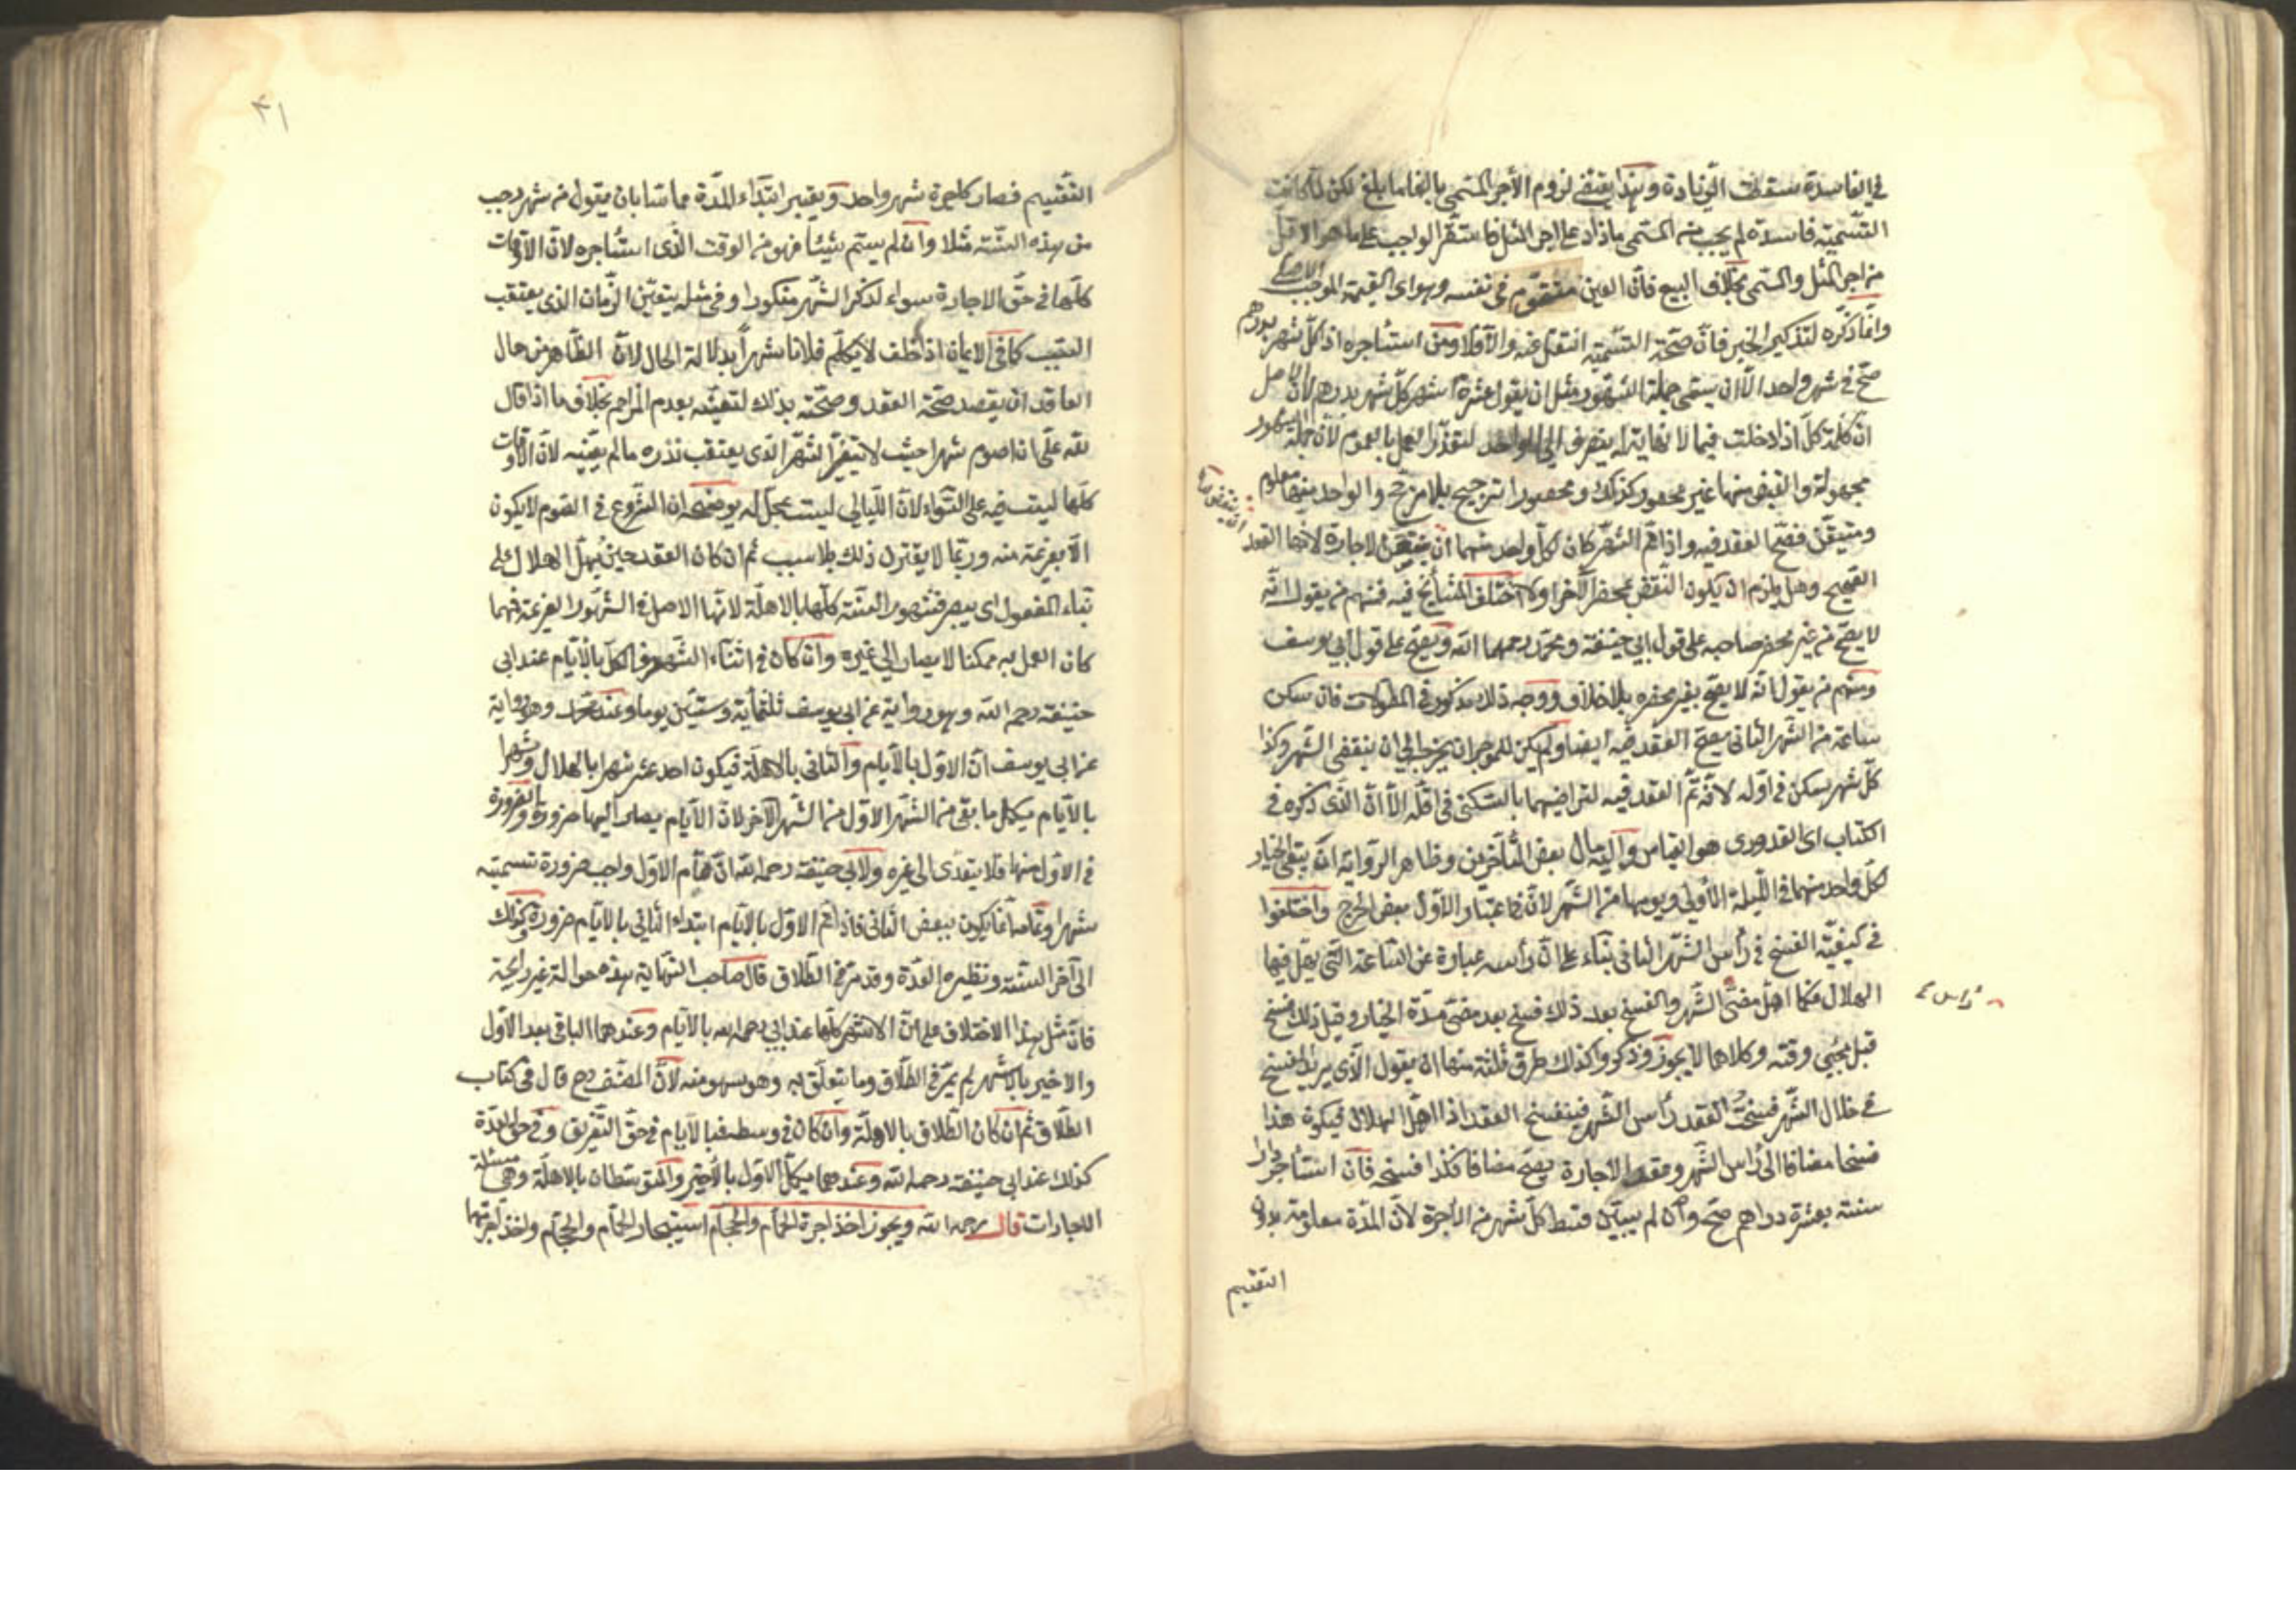 في الفاسدة سقطت الزيادة وهذا يقتضي لزوم الأجر المسمى بالغا ما بلغ لكن لما كانت
التسمية فاسدة لم يجب من المسمى ما زاد على اجر المثل فاستقر الواجب على ما هو الاقل
من اجر المثل والمسمى بخلاف البيع فان العين متقوم في نفسه وهو اى القيمة الموجب الاصلي
وانما ذكره لتذكير الخبر فان صحت التسمية انتقل عنه والا فلا ومن استأجر دارا كل شهر بدرهم
صح في شهر واحد الا ان يسمى جملة الشهور مثل ان يقول عشرة اشهر كل شهر بدرهم لان الاصل
ان كلمة كل اذا دخلت فيما لا نهاية له ينصرف الى الواحد لتعذر العمل بالعموم لان جملة الشهور
مجهولة والبعض منها غير محصور كذلك ومحصورا ترجيح بلا مرجح والواحد منها معلوم
ومتيقن فصح العقد فيه واذا تم الشهر كان لكل واحد منهما ان ينقض الاجارة لانتهاء العقد
الصحيح وهل يلزم ان يكون النقض بمحضر الآخر او لا اختلف المشايخ فيه فمنهم من يقول انه
لا يصح من غير محضر صاحبه على قول ابي حنيفة ومحمد رحمهما الله ويصح على قول ابي يوسف
ومنهم من يقول انه لا يصح بغير محضره بلا خلاف ووجه ذلك مذكور في المطولات فان سكن
ساعة من الشهر الثاني صح العقد فيه ايضا ولم يكن للموجر ان يخرجه الى ان ينقضى الشهر وكذا
كل شهر سكن في اوله لانه تم العقد فيه لتراضيهما بالسكنى في اقله الا ان الذى ذكره في
الكتاب اى القدورى هو القياس واليه مال بعض المتأخرين وظاهر الرواية انه يبقى الخيار
لكل واحد منهما في الليلة الأولى ويومها من الشهر لان في اعتبار الأول بعض الحرج واختلفوا
في كيفية الفسخ في رأس الشهر الثاني بناء على ان رأسه عبارة عن الساعة التي يهل فيها
الهلال فكما اهل مضى الشهر والفسخ بعد ذلك فسخ بعد مضى مدة الخيار وقبل ذلك فسخ
رأس
قبل مجيئ وقته وكلاهما لا يجوز وذكروا لذلك طرق ثلثة منها ان يقول الذى يريد الفسخ
في خلال الشهر فسخت العقد رأس الشهر فينفسخ العقد اذا اهل الهلال فيكون هذا
فسخا مضافا الى رأس الشهر وعقد الاجارة يصح مضافا فكذا فسخه فان استأجر دارا
سنة بعشرة دراهم صح وان لم يبين قسط كل شهر من الاجرة لان المدة معلومة بدون
التقسيم
٣١
التقسيم فصار كاجرة شهر واحد ويعتبر ابتداء المدة مما سما بان يقول من شهر رجب
من هذه السنة مثلا وان لم يسم شيئا فهو من الوقت الذى استأجره لان الاوقات
كلها في حق الاجارة سواء لذكر الشهر منكورا وفي مثله يتعين الزمان الذى يعتقب
السبب كما في الايمان اذا حلف لا يكلم فلانا شهرا بدلالة الحال لان الظاهر من حال
العاقد ان يقصد صحة العقد وصحته بذلك لتعينه بعدم المزاحم بخلاف ما اذا قال
لله على ان اصوم شهرا حيث لا يتعين الشهر الذى يعتقب نذره ما لم يعينه لان الاوقات
كلها ليست فيه على السواء لان الليالي ليست بمحل له يوضحه ان الشروع في الصوم لا يكون
الا بعزيمة منه وربما لا يقترن ذلك بالسبب ثم ان كان العقد حين يهل الهلال على
بناء المفعول اى يبصر فشهور السنة كلها بالاهلة لانها الاصل في الشهور العربية فمهما
كان العمل به ممكنا لا يصار الى غيره وان كان في اثناء الشهر فالكل بالأيام عند ابي
حنيفة رحمه الله وهو رواية عن ابي يوسف ثلثمائة وستين يوما وعند محمد وهو رواية
عن ابي يوسف ان الاول بالأيام والثاني بالاهلة فيكون احد عشر شهرا بالهلال وشهرا
بالأيام يكمل ما بقى من الشهر الاول من الشهر الآخر لان الأيام يصار اليها ضرورة والضرورة
في الاول منها فلا يتعدى الى غيره ولابي حنيفة رحمه الله ان تمام الاول واجب ضرورة تسميته
شهرا وتمامه انما يكون ببعض الثاني فاذا تم الاول بالأيام ابتداء الثاني بالأيام ضرورة وكذلك
الى آخر السنة ونظيره العدة وقد مر في الطلاق قال صاحب النهاية هذه حوالة غير رائجة
فان مثل هذا الاختلاف على ان الاشهر كلها عند ابي رحمه الله بالأيام وعندهما الباقي بعد الأول
والاخير بالاشهر لم يمر في الطلاق وما يتعلق به وهو سهو منه لان المصنف رح قال في كتاب
الطلاق ثم ان كان الطلاق بالاهلة وان كان في وسطه فبالأيام في حق التفريق وفي حق العدة
كذلك عند ابي حنيفة رحمه الله وعندهما يكمل الاول بالأخير والمتوسطان بالاهلة وهى مسئلة
الاجارات قال رحمه الله ويجوز اخذ اجرة الحمام والحجام استيجار الحمام والحجام واخذ اجرتهما